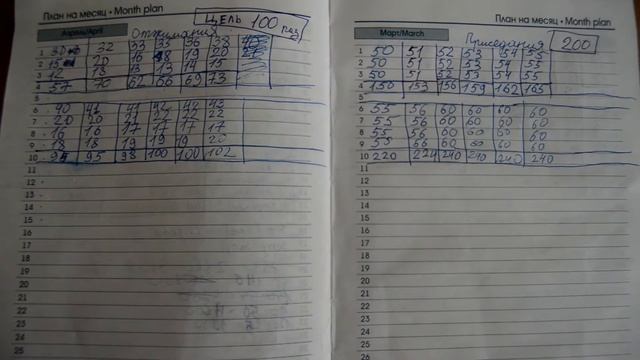 План на месяц • Month plan
Апрель/April
Отжимания
ЦЕЛЬ 100 раз
1 30 32 33 35 36 38
2 15 20 16 18 19 20
3 12 18 13 13 14 15
4 57 70 62 66 69 73
5
6 40 41 42 42 42 43
7 20 20 21 22 22 22
8 16 16 17 17 17 17
9 18 18 19 19 19 20
10 94 95 98 100 100 102
11
12
13
14
15
16
17
18
19
20
21
22
23
24
25
План на месяц • Month plan
Март/March
Приседания
200
1 50 51 52 53 54 55
2 50 51 52 53 54 55
3 50 51 52 53 54 55
4 150 153 156 159 162 165
5
6 55 56 60 60 60 60
7 55 56 60 60 60 60
8 55 56 60 60 60 60
9 55 56 60 60 60 60
10 220 224 240 240 240 240
11
12
13
14
15
16
17
18
19
20
21
22
23
24
26